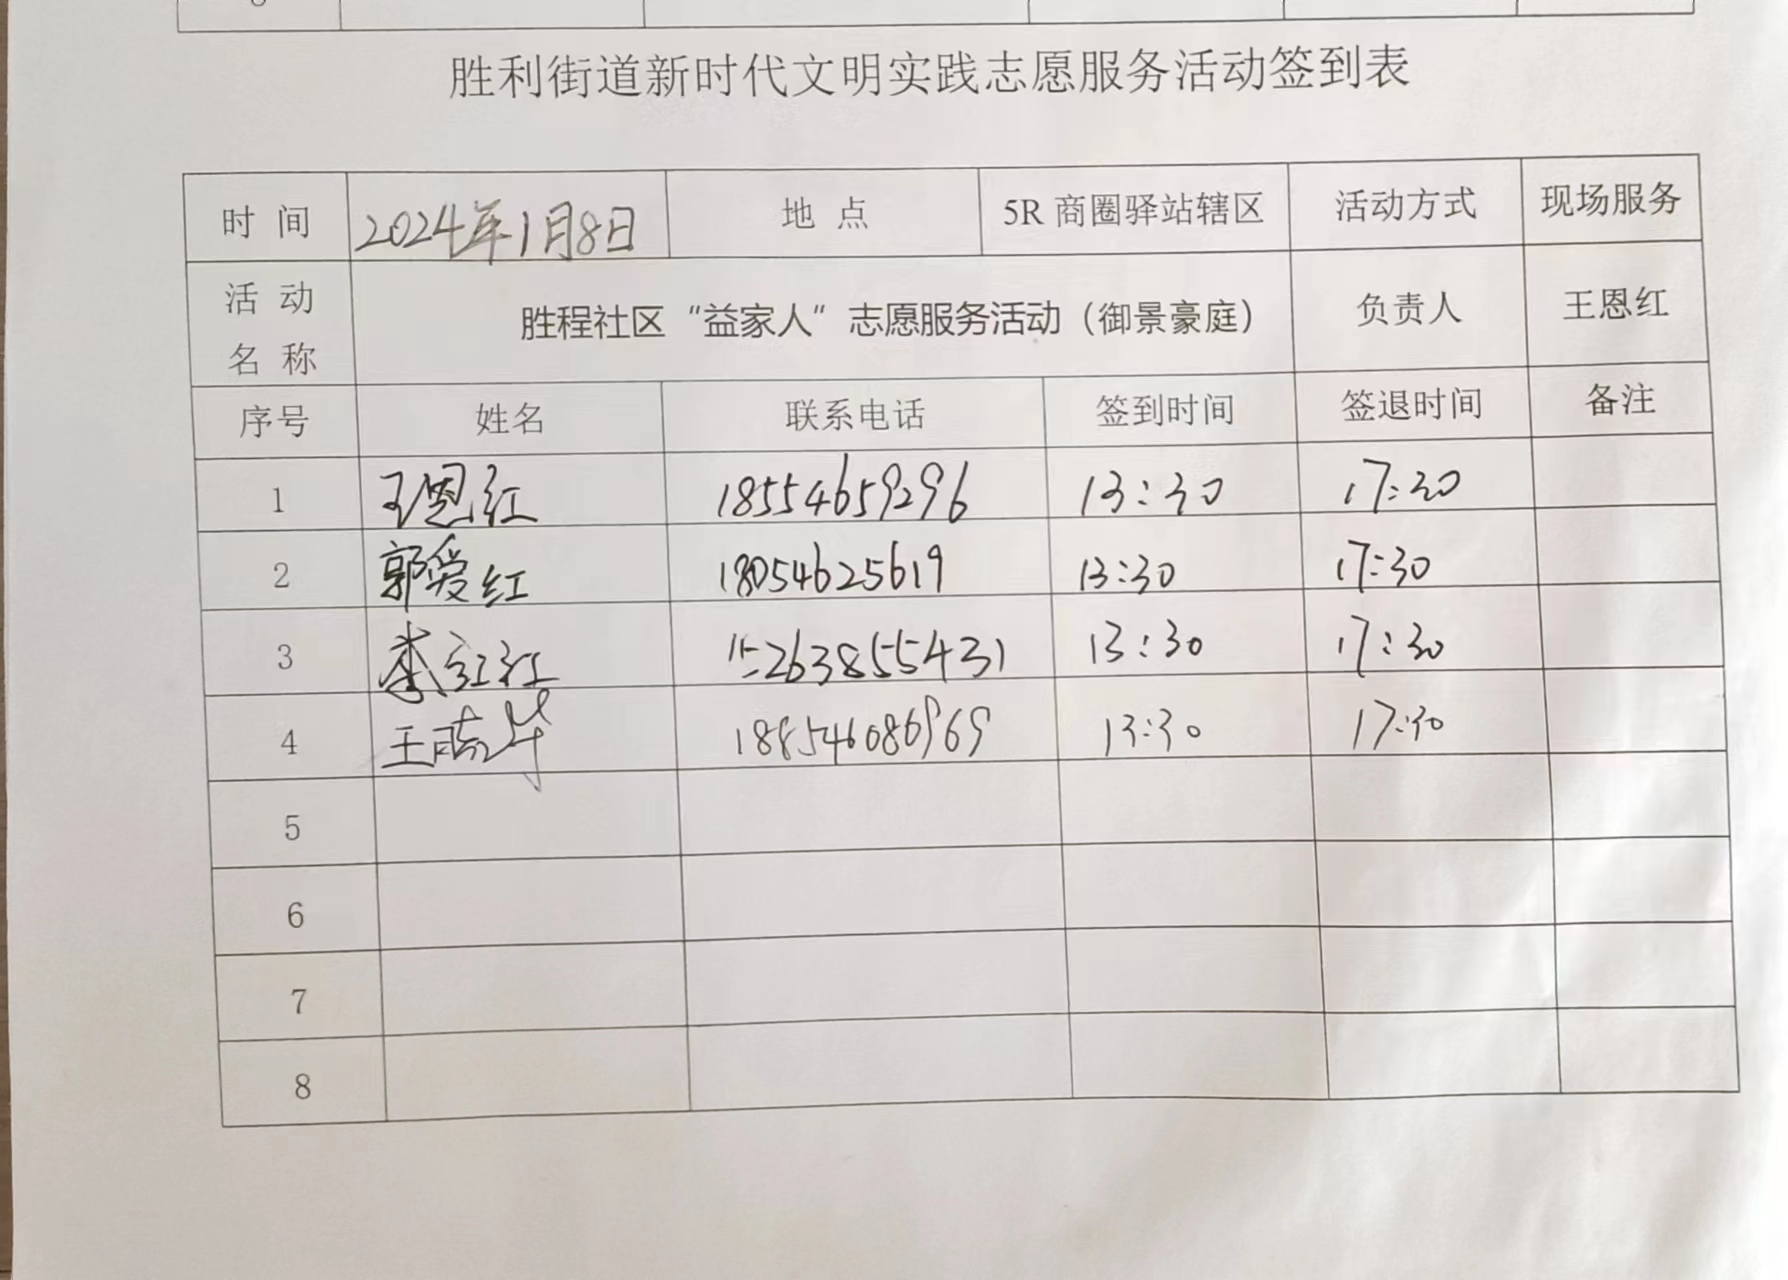 胜利街道新时代文明实践志愿服务活动签到表
时 间 2024年1月8日 地 点 5R 商圈驿站辖区 活动方式 现场服务
活 动
名 称 胜程社区“益家人”志愿服务活动（御景豪庭） 负责人 王恩红
序号 姓名 联系电话 签到时间 签退时间 备注
1 王恩红 18554659296 13:30 17:30
2 郭爱红 18054625619 13:30 17:30
3 李红红 15263855431 13:30 17:30
4 王 188546086969 13:30 17:30
5
6
7
8